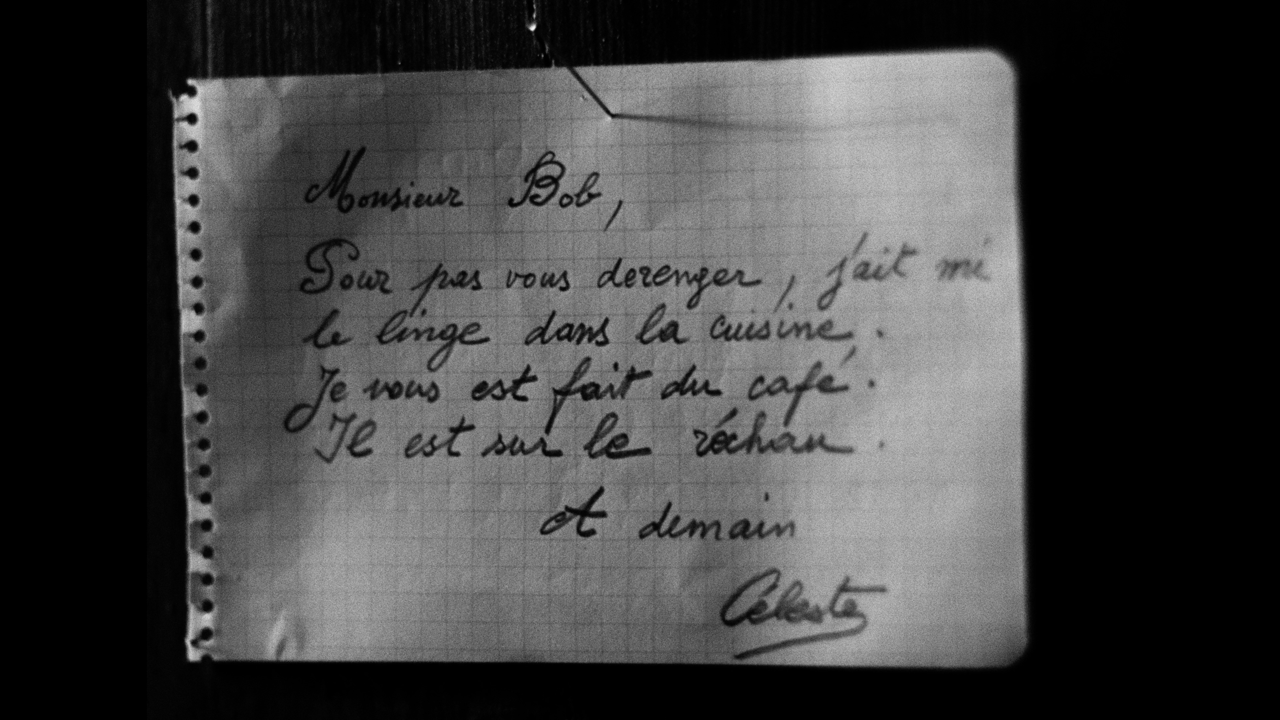 Monsieur Bob,
Pour pas vous derenger, j'ait mi
le linge dans la cuisine.
Je vous est fait du café.
Il est sur le réchau.
A demain
Céleste